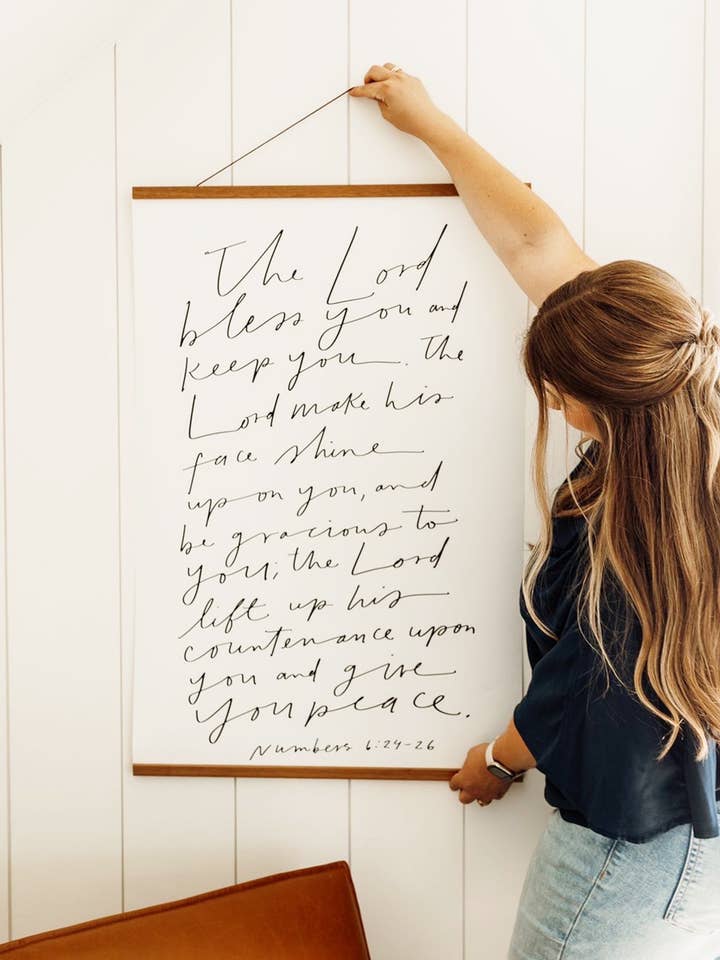 The Lord
bless you and
keep you. The
Lord make his
face shine
upon you, and
be gracious to
you; the Lord
lift up his
countenance upon
you and give
you peace.
Numbers 6:24-26